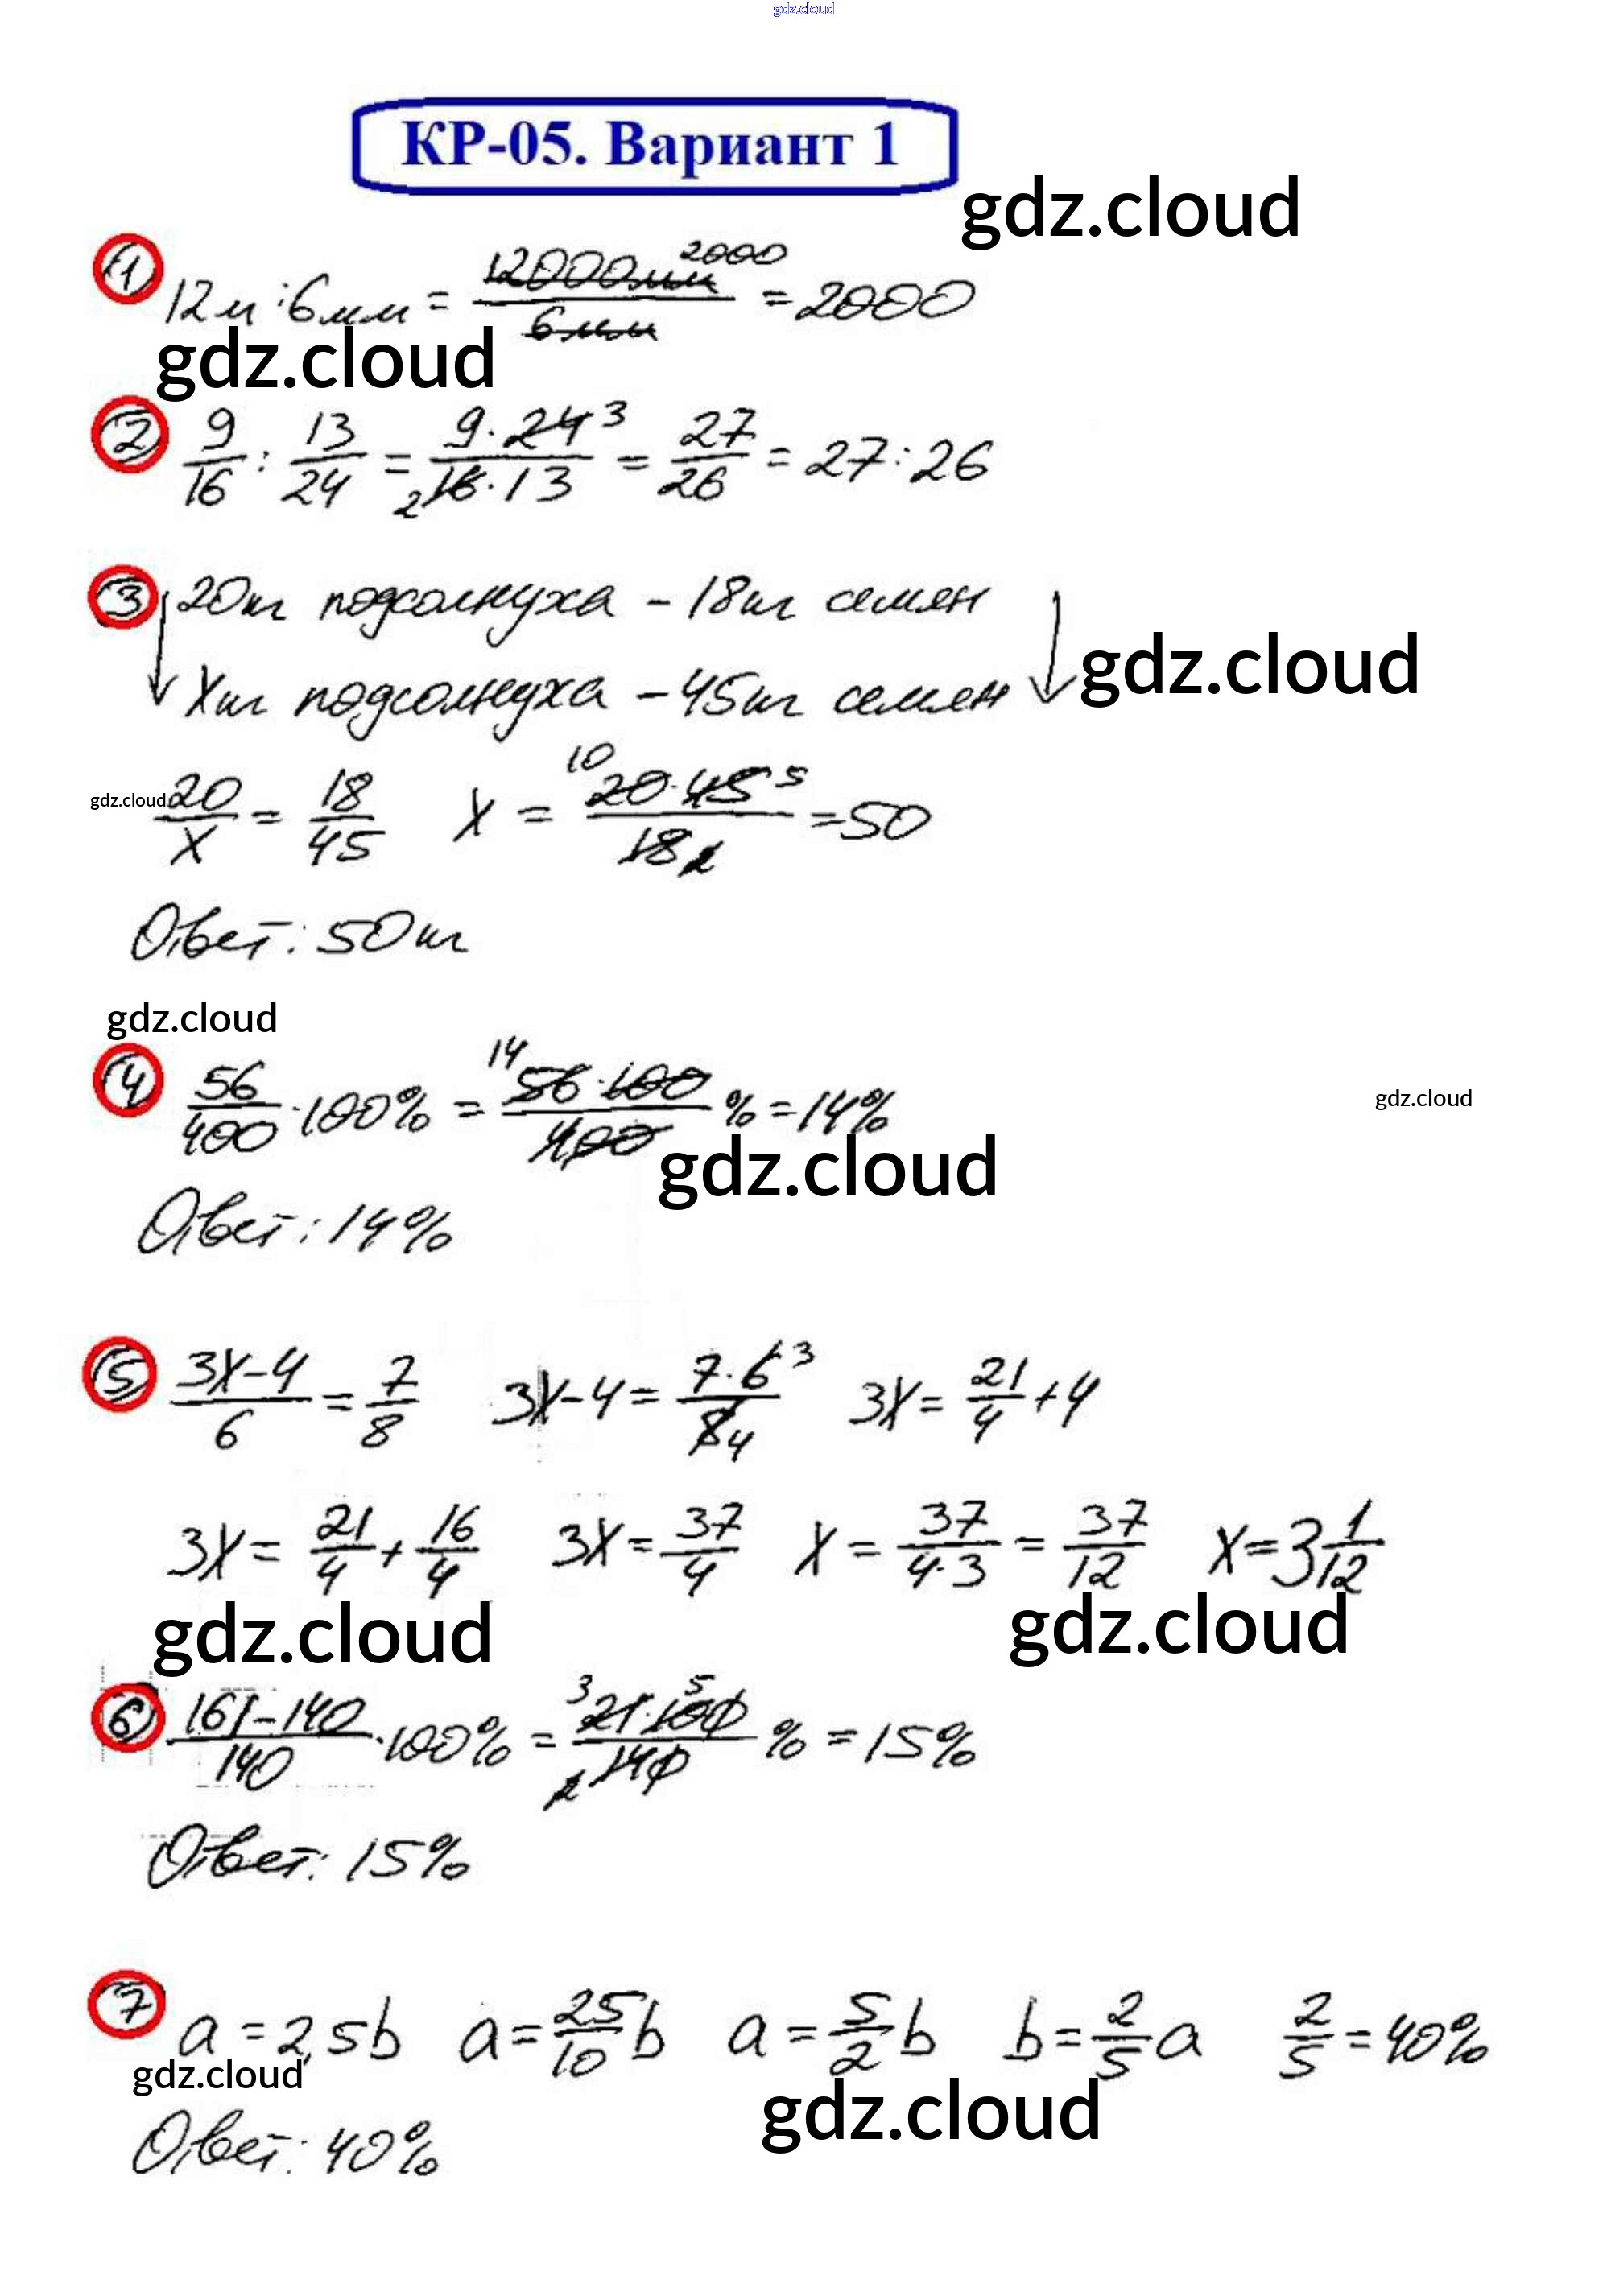 gdz.cloud
КР-05. Вариант 1
gdz.cloud
1 12м : 6мм = 12000мм 2000 / 6мм = 2000
gdz.cloud
2 9/16 : 13/24 = 9·24 3 / 2 16·13 = 27/26 = 27:26
3 20т подсолнуха – 18т семян
gdz.cloud
Xт подсолнуха – 45т семян
gdz.cloud
20/X = 18/45 X = 10 20·45 5 / 18 2 = 50
Ответ: 50т
gdz.cloud
4 56/400 · 100% = 14 56·100 / 400 % = 14%
gdz.cloud
gdz.cloud
Ответ: 14%
5 3X-4 / 6 = 7/8 3X-4 = 7·6 3 / 8 4 3X = 21/4 + 4
3X = 21/4 + 16/4 3X = 37/4 X = 37/4·3 = 37/12 X = 3 1/12
gdz.cloud gdz.cloud
6 161-140 / 140 · 100% = 3 21·100 5 / 2 140 % = 15%
Ответ: 15%
7 a = 2,5b a = 25/10 b a = 5/2 b b = 2/5 a 2/5 = 40%
gdz.cloud gdz.cloud
Ответ: 40%